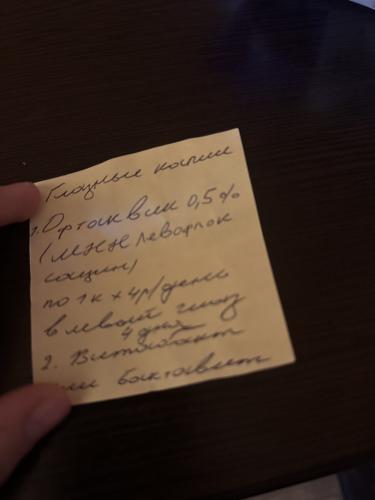 Глазные капли
1. Офтаквик 0,5%
(МНН Левофлок
сацин)
по 1к х 4р/день
в левый глаз
4 дня
2. Витабакт
или бактавит